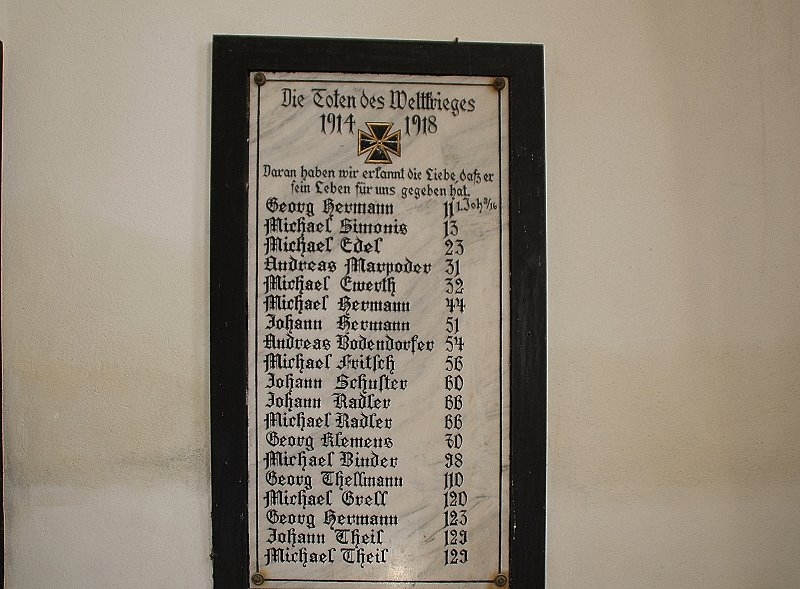 Die Toten des Weltkrieges
1914 1918
Daran haben wir erkannt die Liebe, daß er
sein Leben für uns gegeben hat.
1. Joh 3/16
Georg Hermann 11
Michael Simonis 13
Michael Edel 23
Andreas Marpoder 31
Michael Ewerth 32
Michael Hermann 44
Johann Hermann 51
Andreas Bodendorfer 54
Michael Fritsch 56
Johann Schuster 60
Johann Radler 66
Michael Radler 66
Georg Klemens 30
Michael Binder 98
Georg Thellmann 110
Michael Grell 120
Georg Hermann 123
Johann Theil 129
Michael Theil 129